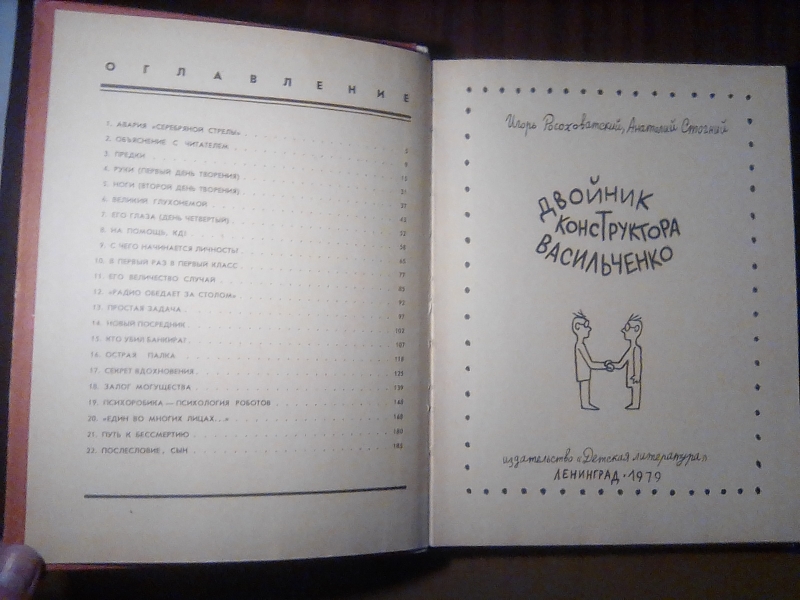 ОГЛАВЛЕНИЕ
1. АВАРИЯ «СЕРЕБРЯНОЙ СТРЕЛЫ» 3
2. ОБЪЯСНЕНИЕ С ЧИТАТЕЛЕМ
3. ПРЕДКИ
4. РУКИ (ПЕРВЫЙ ДЕНЬ ТВОРЕНИЯ)
5. НОГИ (ВТОРОЙ ДЕНЬ ТВОРЕНИЯ)
6. ВЕЛИКИЙ ГЛУХОНЕМОЙ
7. ЕГО ГЛАЗА (ДЕНЬ ЧЕТВЕРТЫЙ)
8. НА ПОМОЩЬ, КД!
9. С ЧЕГО НАЧИНАЕТСЯ ЛИЧНОСТЬ?
10. В ПЕРВЫЙ РАЗ В ПЕРВЫЙ КЛАСС
11. ЕГО ВЕЛИЧЕСТВО СЛУЧАЙ
12. «РАДИО ОБЕДАЕТ ЗА СТОЛОМ»
13. ПРОСТАЯ ЗАДАЧА
14. НОВЫЙ ПОСРЕДНИК 103
15. КТО УБИЛ БАНКИРА? 107
16. ОСТРАЯ ПАЛКА
17. СЕКРЕТ ВДОХНОВЕНИЯ 125
18. ЗАЛОГ МОГУЩЕСТВА 139
19. ПСИХОРОБИКА — ПСИХОЛОГИЯ РОБОТОВ
20. «ЕДИН ВО МНОГИХ ЛИЦАХ...»
21. ПУТЬ К БЕССМЕРТИЮ 180
22. ПОСЛЕСЛОВИЕ, СЫН
Игорь Росоховатский, Анатолий Стогний
ДВОЙНИК
КОНСТРУКТОРА
ВАСИЛЬЧЕНКО
издательство «Детская литература»
ЛЕНИНГРАД · 1979